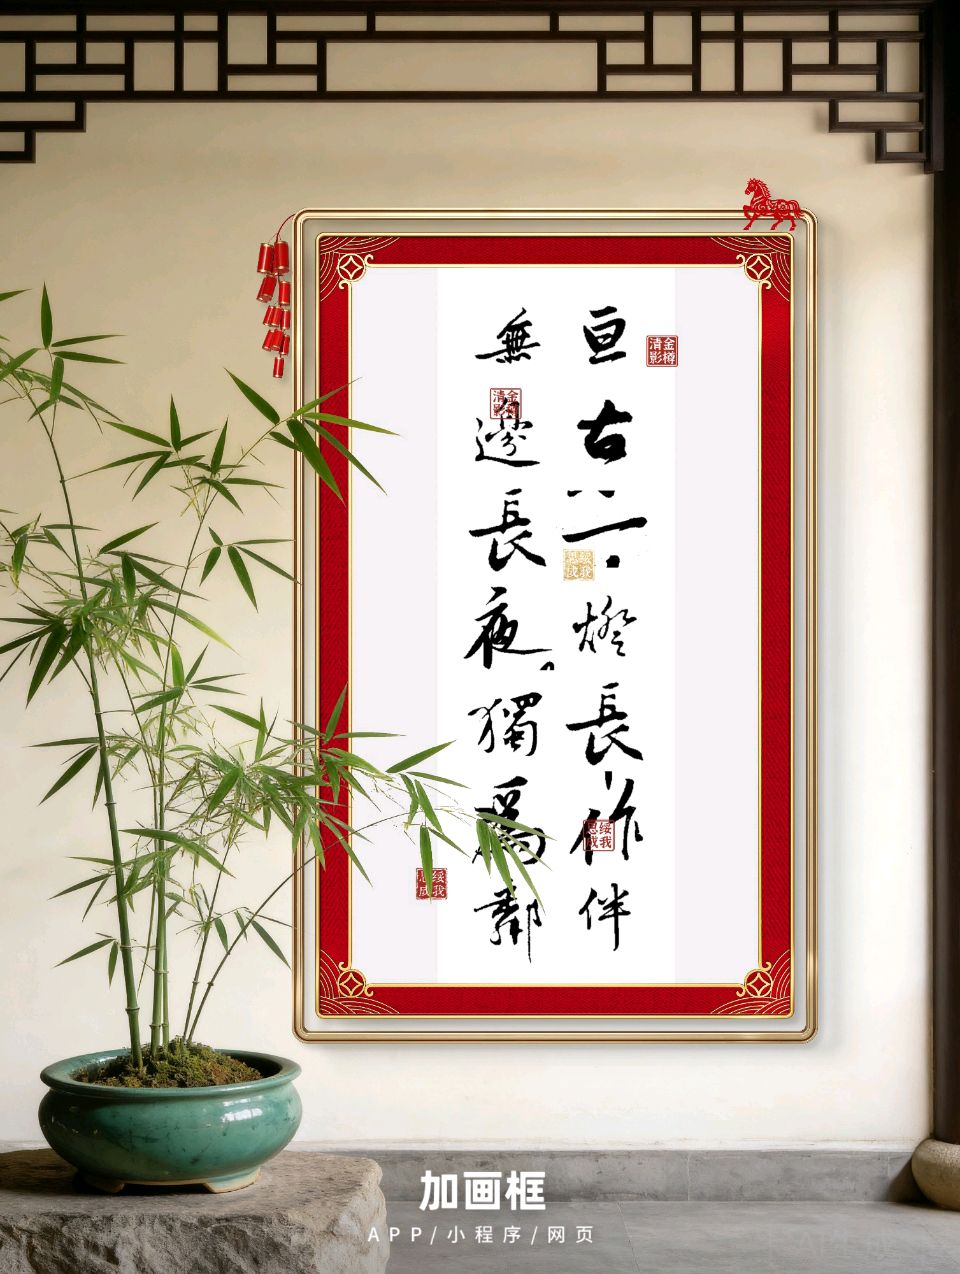 亘古一燈長作伴
無邊長夜獨爲鄰
金樽清影
金樽清影
绥我思成
绥我思成
绥我思成
加画框
APP/小程序/网页